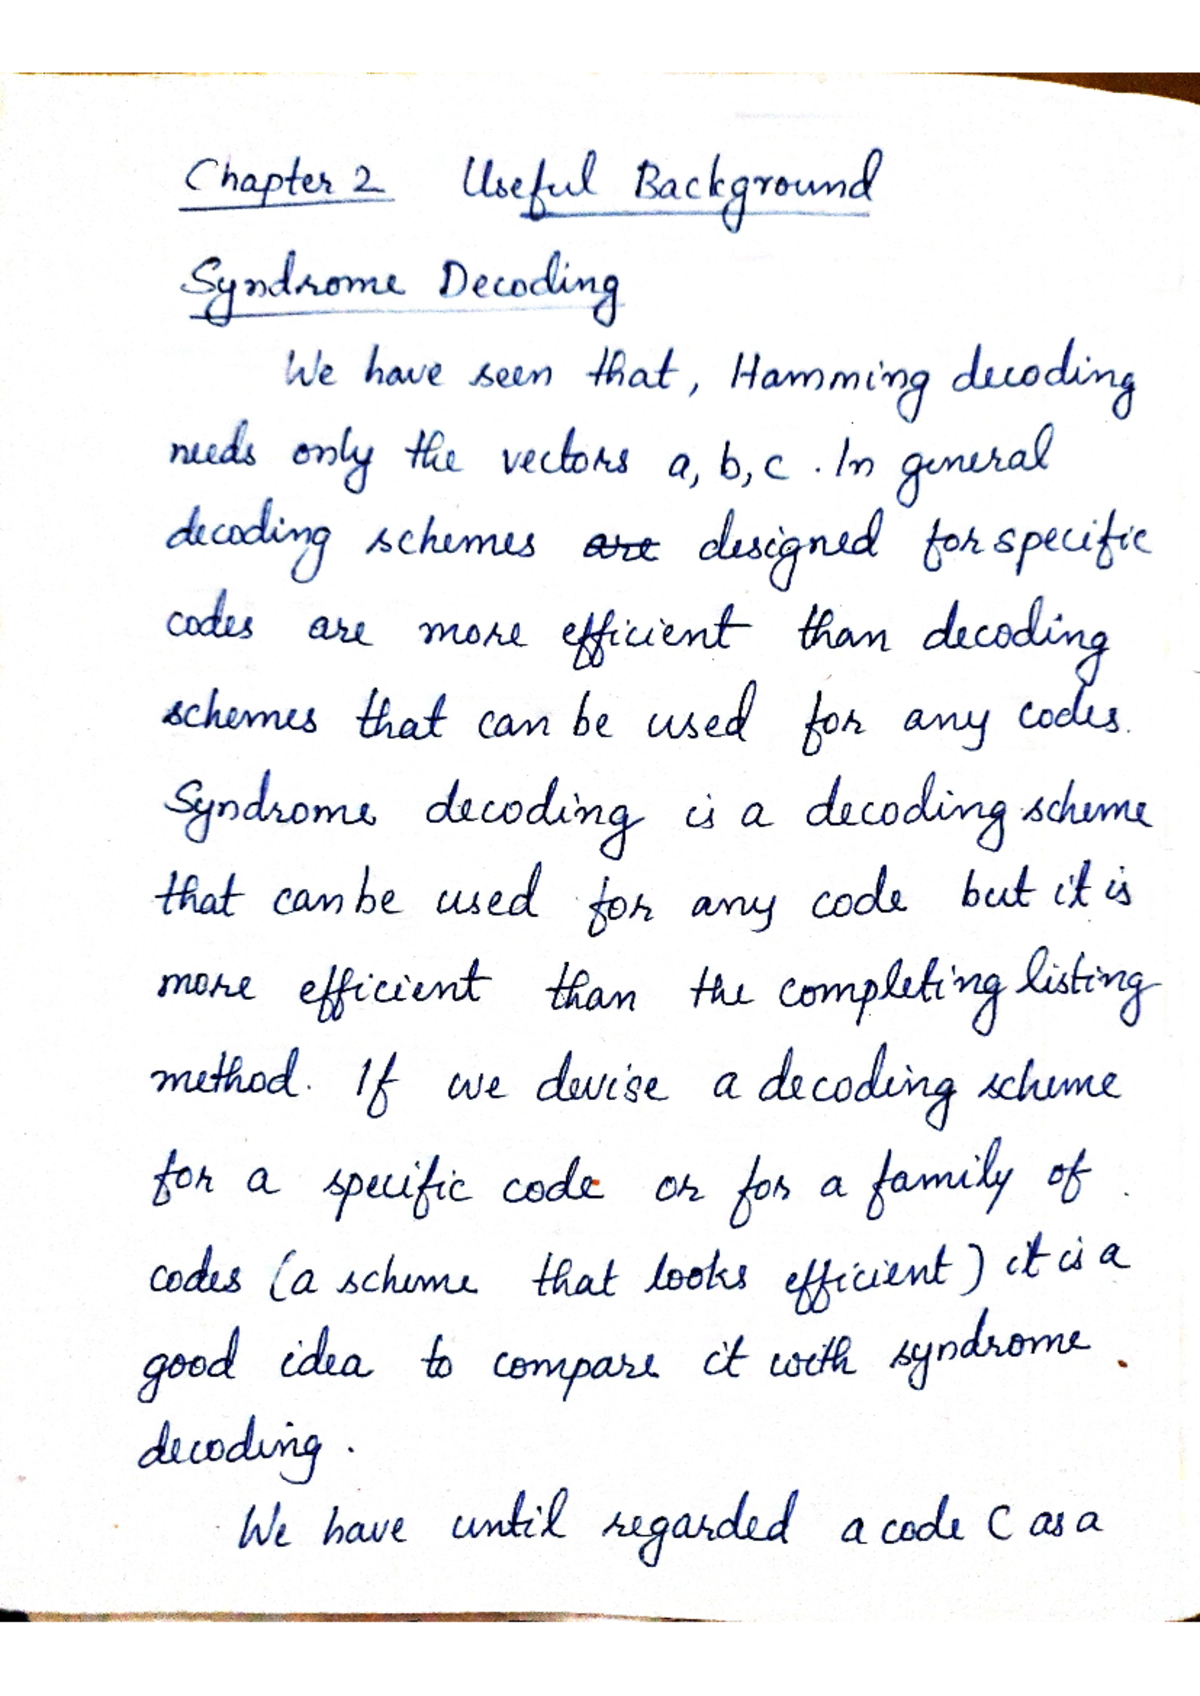 Chapter 2 Useful Background
Syndrome Decoding
We have seen that, Hamming decoding
needs only the vectors a, b, c. In general
decoding schemes are designed for specific
codes are more efficient than decoding
schemes that can be used for any codes.
Syndrome decoding is a decoding scheme
that can be used for any code but it is
more efficient than the completing listing
method. If we devise a decoding scheme
for a specific code or for a family of
codes (a scheme that looks efficient) it is a
good idea to compare it with syndrome
decoding.
We have until regarded a code C as a